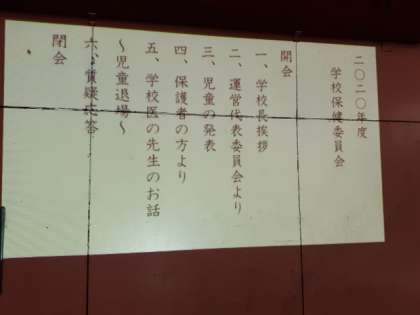 二〇二〇年度
学校保健委員会
開会
一、学校長挨拶
二、運営代表委員会より
三、児童の発表
四、保護者の方より
五、学校医の先生のお話
～児童退場～
六、質疑応答
閉会